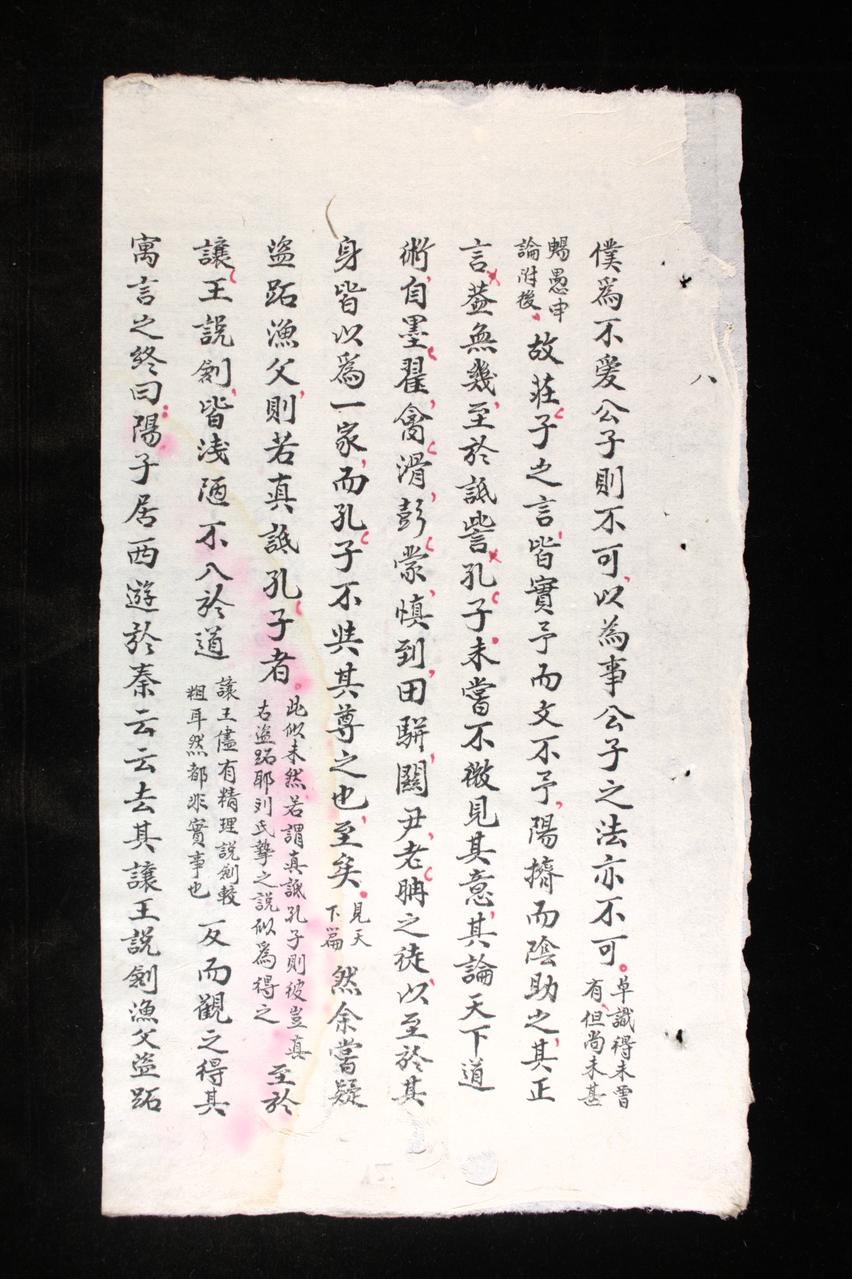 八
僕爲不爱公子則不可以为事公子之法亦不可卓識得未曾有但尚未甚
暢愚申論附後故莊子之言皆實予而文不予陽擠而陰助之其正
言葢無幾至於詆訾孔子未嘗不微見其意其論天下道
術自墨翟禽滑彭蒙愼到田駢關尹老聃之徒以至於其
身皆以爲一家而孔子不與其尊之也至矣見天下篇然余嘗疑
盜跖漁父則若真詆孔子者此似未然若謂真詆孔子則彼豈真右盜跖耶刘氏摯之説似爲得之至於
讓王説劍皆浅陋不入於道讓王儘有精理説劍較粗耳然都非實事也反而觀之得其
寓言之終曰陽子居西遊於秦云云去其讓王説劍漁父盜跖